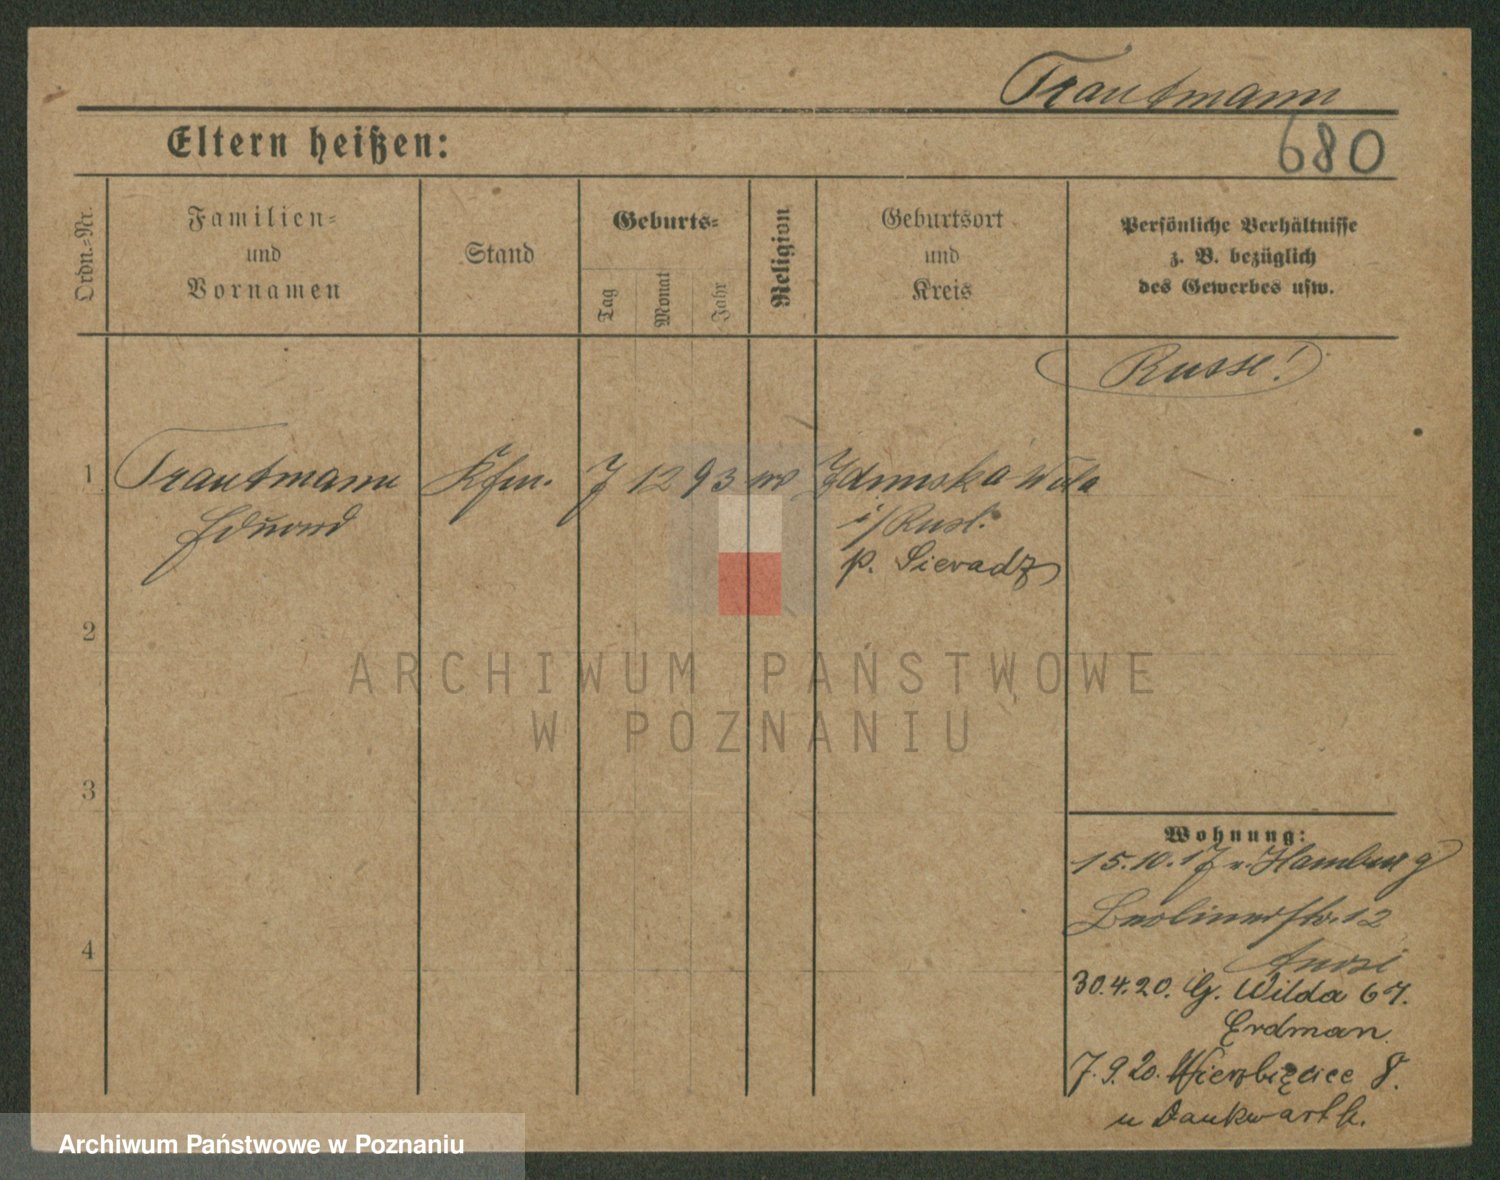 Trautmann
680
Eltern heißen:
Ordn.-Nr.
Familien-
und
Vornamen
Stand
Geburts-
Tag
Monat
Jahr
Religion
Geburtsort
und
Kreis
Persönliche Verhältnisse
z. B. bezüglich
des Gewerbes usw.
Russe!
1 Trautmann Kfm. 7 12 93 Zdunska Wola
Eduard i/Rusl.
p. Sieradz
2
3
4
Wohnung:
15.10.17 v. Hamburg
Berlinerstr. 12
30.4.20. G. Wilda 67.
Erdman.
7.9.20. Wierzbięcice 8.
u Dankwarth.
ARCHIWUM PAŃSTWOWE
W POZNANIU
Archiwum Państwowe w Poznaniu